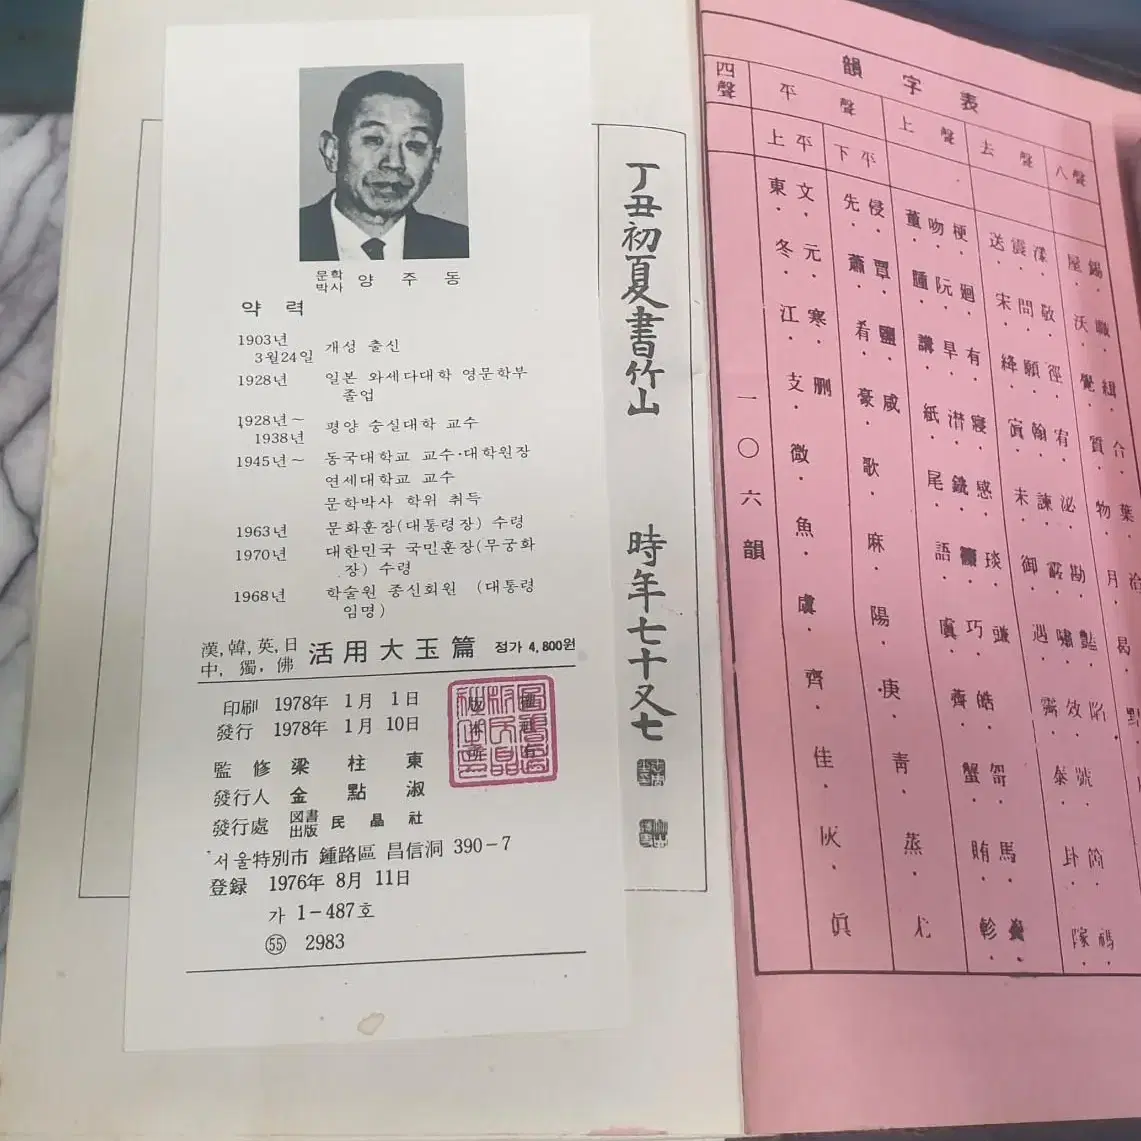 문학
박사 양 주 동
약 력
1903년
3월24일 개성 출신
1928년 일본 와세다대학 영문학부
졸업
1928년~
1938년 평양 숭실대학 교수
1945년~ 동국대학교 교수·대학원장
연세대학교 교수
문학박사 학위 취득
1963년 문화훈장(대통령장) 수령
1970년 대한민국 국민훈장(무궁화
장) 수령
1968년 학술원 종신회원 (대통령
임명)
漢, 韓, 英, 日
中, 獨, 佛 活用大玉篇 정가 4,800원
印刷 1978年 1月 1日
發行 1978年 1月 10日
監修 梁柱東
發行人 金點淑
發行處 図書
出版 民晶社
서울特別市 鍾路區 昌信洞 390-7
登録 1976年 8月 11日
가 1-487호
55 2983
丁丑初夏書竹山 時年七十又七
韻字表
四聲
平聲
上聲
去聲
入聲
上平
下平
一〇六韻
東·冬·江·支·微·魚·虞·齊·佳·灰·眞
文·元·寒·刪
先·蕭·肴·豪·歌·麻·陽·庚·靑·蒸·尤
侵·覃·鹽·咸
董·腫·講·紙·尾·語·麌·薺·蟹·賄·軫
吻·阮·旱·潸·銑·巧·皓·哿·馬
梗·迥·有·寢·感·琰·豏
送·宋·絳·寘·未·御·遇·霽·泰·卦·隊
震·問·願·翰·諫·嘯·效·號·箇·禡
漾·敬·徑·宥·沁·勘·豔·陷
屋·沃·覺·質·物·月·曷·黠
錫·職·緝·合·葉·洽